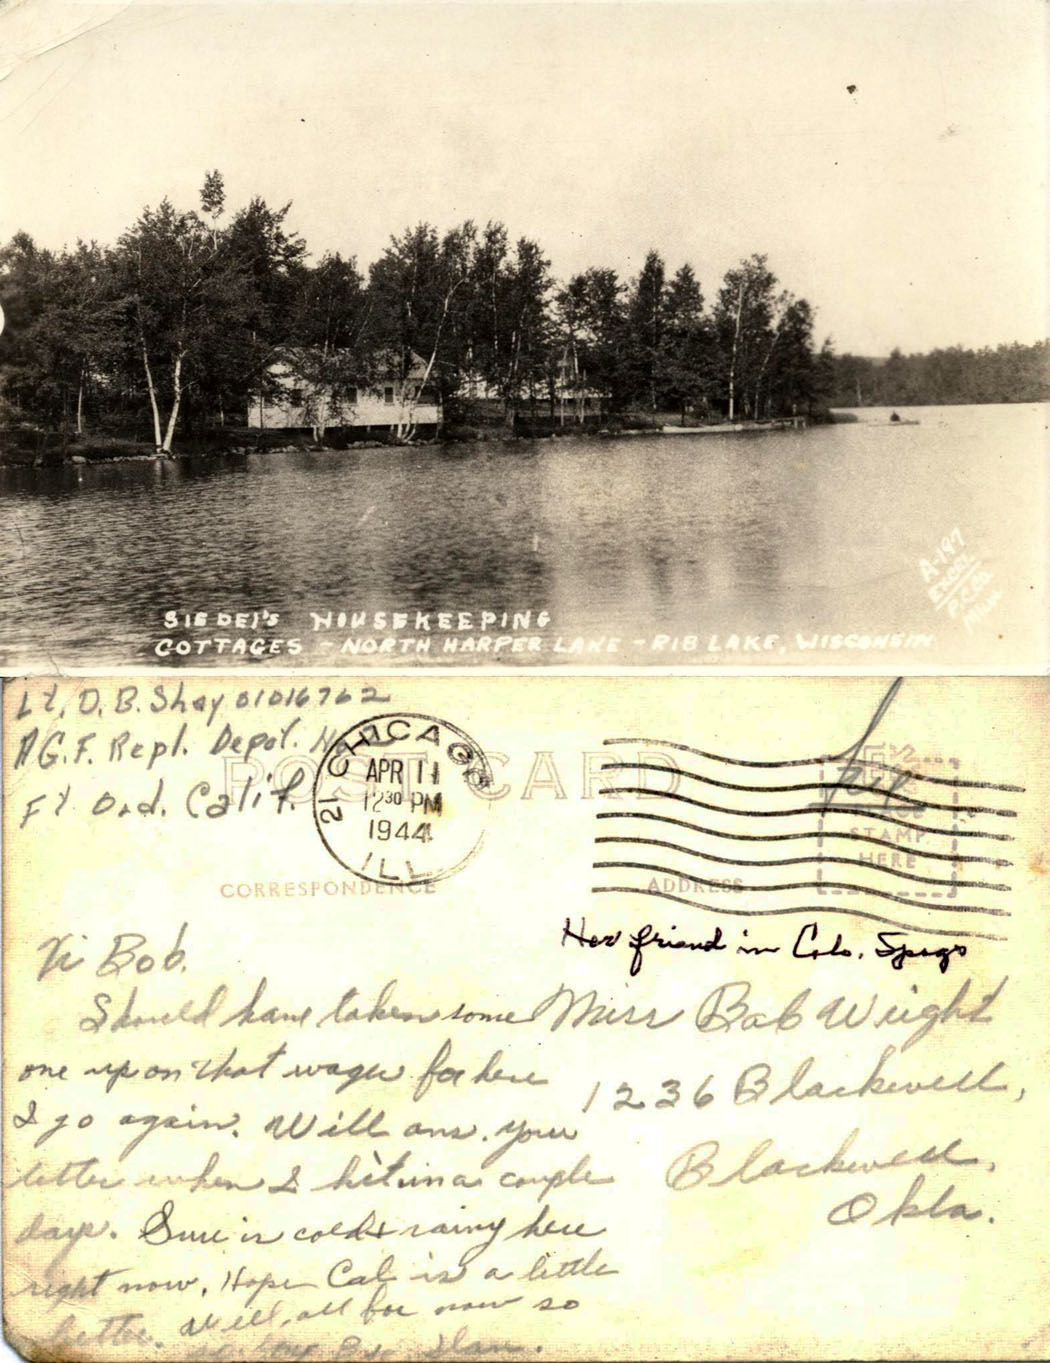 SIEDEL'S HOUSEKEEPING
COTTAGES - NORTH HARPER LAKE - RIB LAKE, WISCONSIN
A-197
P.C. Co.
Lt. D. B. Shay 01016762
A.G.F. Repl. Depot. No
Ft Ord. Calif.
POST CARD
CHICAGO
21
APR 11
1230 PM
1944
ILL
free
PLACE
STAMP
HERE
CORRESPONDENCE
ADDRESS
Her friend in Colo. Spgs
Hi Bob.
Should have taken some
one up on that wager for here
I go again. Will ans. your
letter when I hit in a couple
days. Sure is cold & rainy here
right now. Hope Cal is a little
better. Well, all for now so
Miss Bob Wright
1236 Blackwell,
Blackwell,
Okla.